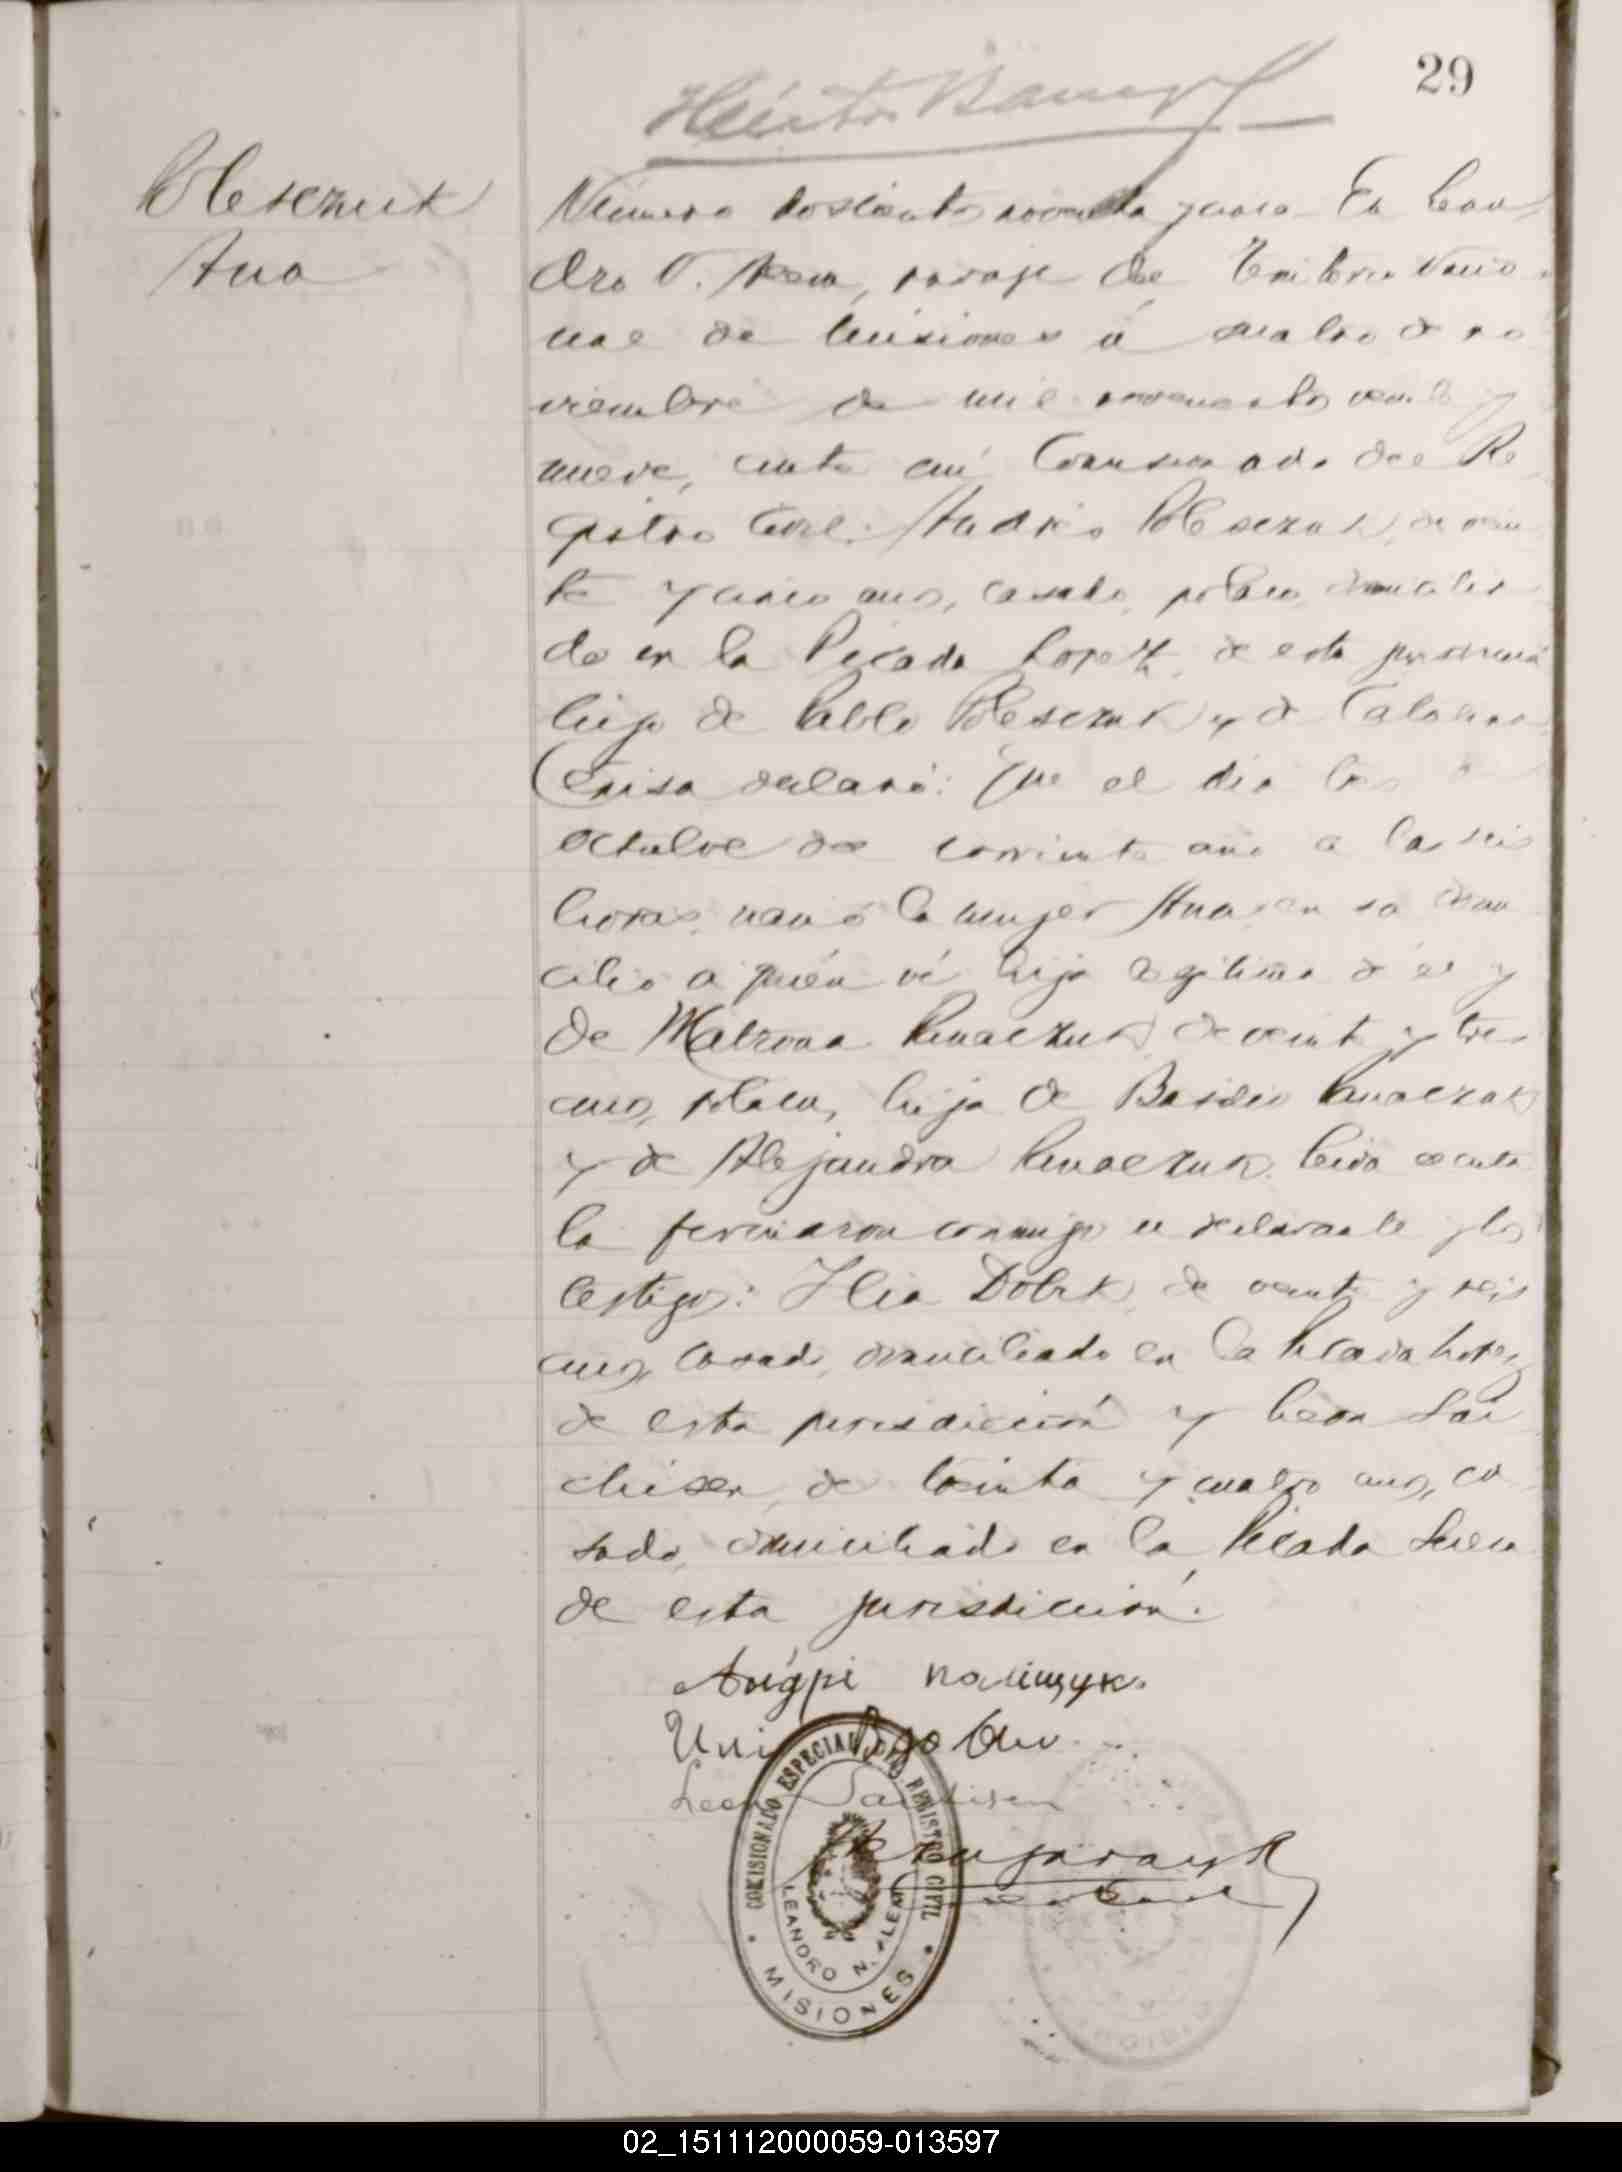 29
Poleszcuk
Ana
Número doscientos noventa y cinco En Lean
dro N. Alem, paraje del Territorio Nacio
nal de Misiones á cuatro de no
viembre de mil novecientos veinte y
nueve, ante mí Comisionado del Re
gistro Civil: Andrés Polesczuk, de vein
te y cinco años, casado, polaco, domicilia
do en la Picada Lopez, de esta jurisdicción
hijo de Pablo Polesczuk y de Catalina
declaró: Que el día tres
octubre del corriente año a las seis
horas, nació la mujer Ana, en su domi
cilio a quién ví hija legítima de él y
de Matrona de veinte y tres
años, polaca, hija de Basilio
y de Alejandra Leída el acta
la firmaron conmigo el declarante y los
testigos: Ilia de veinte y seis
años, casado, domiciliado en la Picada Lopez
de esta jurisdicción y Leon
de treinta y cuatro años, ca
sado, domiciliado en la Picada
de esta jurisdicción.
Андрі Поліщук.
COMISIONADO ESPECIAL DEL REGISTRO CIVIL
LEANDRO N. ALEM
MISIONES
02_151112000059-013597